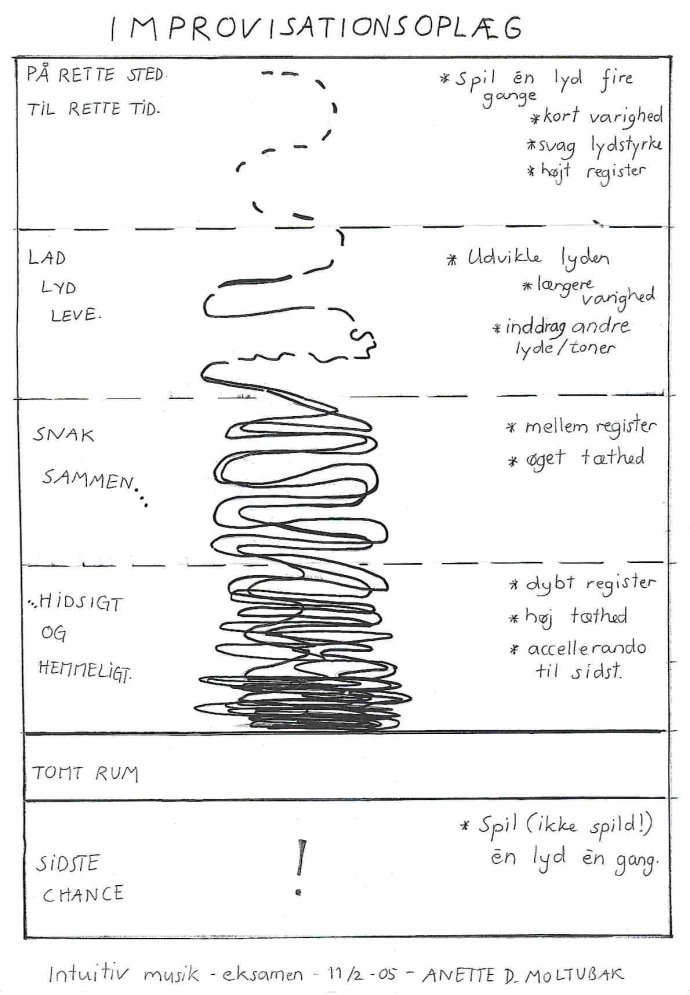 IMPROVISATIONSOPLÆG
PÅ RETTE STED
TIL RETTE TID.
*Spil én lyd fire
gange
*kort varighed
*svag lydstyrke
*højt register
LAD
LYD
LEVE.
* Udvikle lyden
*længere
varighed
*inddrag andre
lyde/toner
SNAK
SAMMEN...
* mellem register
* øget tæthed
...HIDSIGT
OG
HEMMELIGT.
* dybt register
* høj tæthed
* accellerando
til sidst.
TOMT RUM
SIDSTE
CHANCE
!
* Spil (ikke spild!)
én lyd én gang.
Intuitiv musik - eksamen - 11/2-05 - ANETTE D. MOLTUBAK